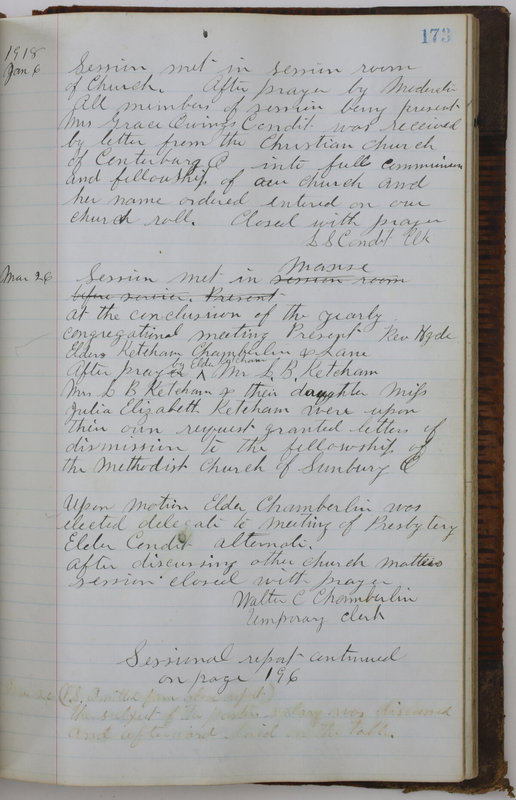 173
1918
Jan 6 Session met in session room
of Church. After prayer by Moderator
All members of session being present
Mrs Grace Owings Condit was received
by letter from the Christian church
of Centerburg O into full communion
and fellowship of our church and
her name ordered entered on our
church roll. Closed with prayer
L S Condit Clk
Manse
Mar 26 Session met in session room
before service. Present
at the conclusion of the yearly
congregational meeting Present Rev Hyde
Elders Ketcham Chamberlin & Lane
by Elder Ketcham
After prayer ^ Mr L. B. Ketcham
Mrs L B Ketcham & their daughter Miss
Julia Elizabeth Ketcham were upon
their own request granted letters of
dismission to the fellowship of
the Methodist Church of Sunbury O
Upon motion Elder Chamberlin was
elected delegate to meeting of Presbytery
Elder Condit alternate.
After discussing other church matters
session closed with prayer
Walter C Chamberlin
temporary clerk
Sessional report continued
on page 196
Mar 26 (P.S. Omitted from above report)
The subject of the pastors salary was discussed
and afterward laid on the table.